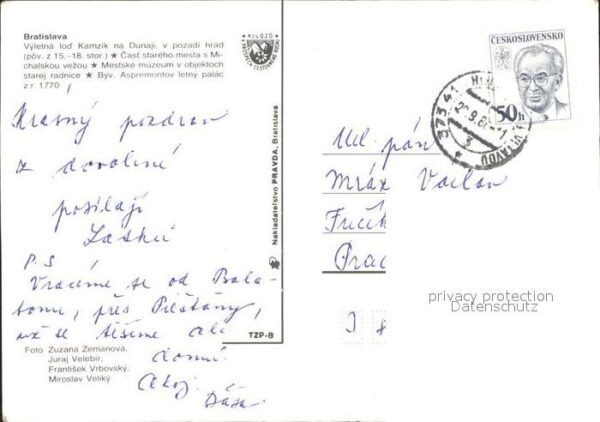 Bratislava
Výletná loď Kamzík na Dunaji, v pozadí hrad
(pôv. z 15.-18. stor.) ★ Časť starého mesta s Mi-
chalskou vežou ★ Mestské múzeum v objektoch
starej radnice ★ Býv. Aspremontov letný palác
z r. 1770
Kčs 0,20
Krásný pozdrav
z dovolené
posílají
P.S
Vracíme se od Bala-
tonu, přes Piešťany,
už se těšíme ale
domů.
Ahoj
Dáša
Foto Zuzana Zemanová,
Juraj Velebír,
František Vrbovský,
Miroslav Veliký
Nakladateľstvo PRAVDA, Bratislava
TZP-B
ČESKOSLOVENSKO
50h
373 41
VLTAVOU
3
Vel. pán
Mráz Václav
Fučík
Prac
privacy protection
Datenschutz